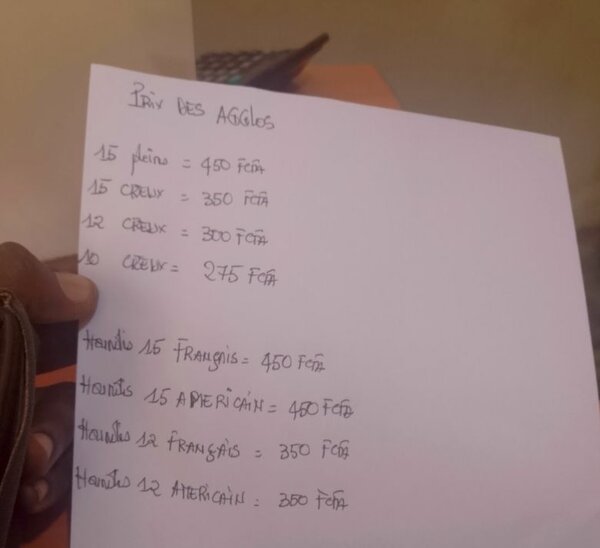 Prix DES AGGLOS
15 pleins = 450 FCFA
15 CREUX = 350 FCFA
12 CREUX = 300 FCFA
10 CREUX = 275 FCFA
15 FRANÇAIS = 450 FCFA
15 AMERICAIN = 450 FCFA
12 FRANÇAIS = 350 FCFA
12 AMERICAIN = 350 FCFA